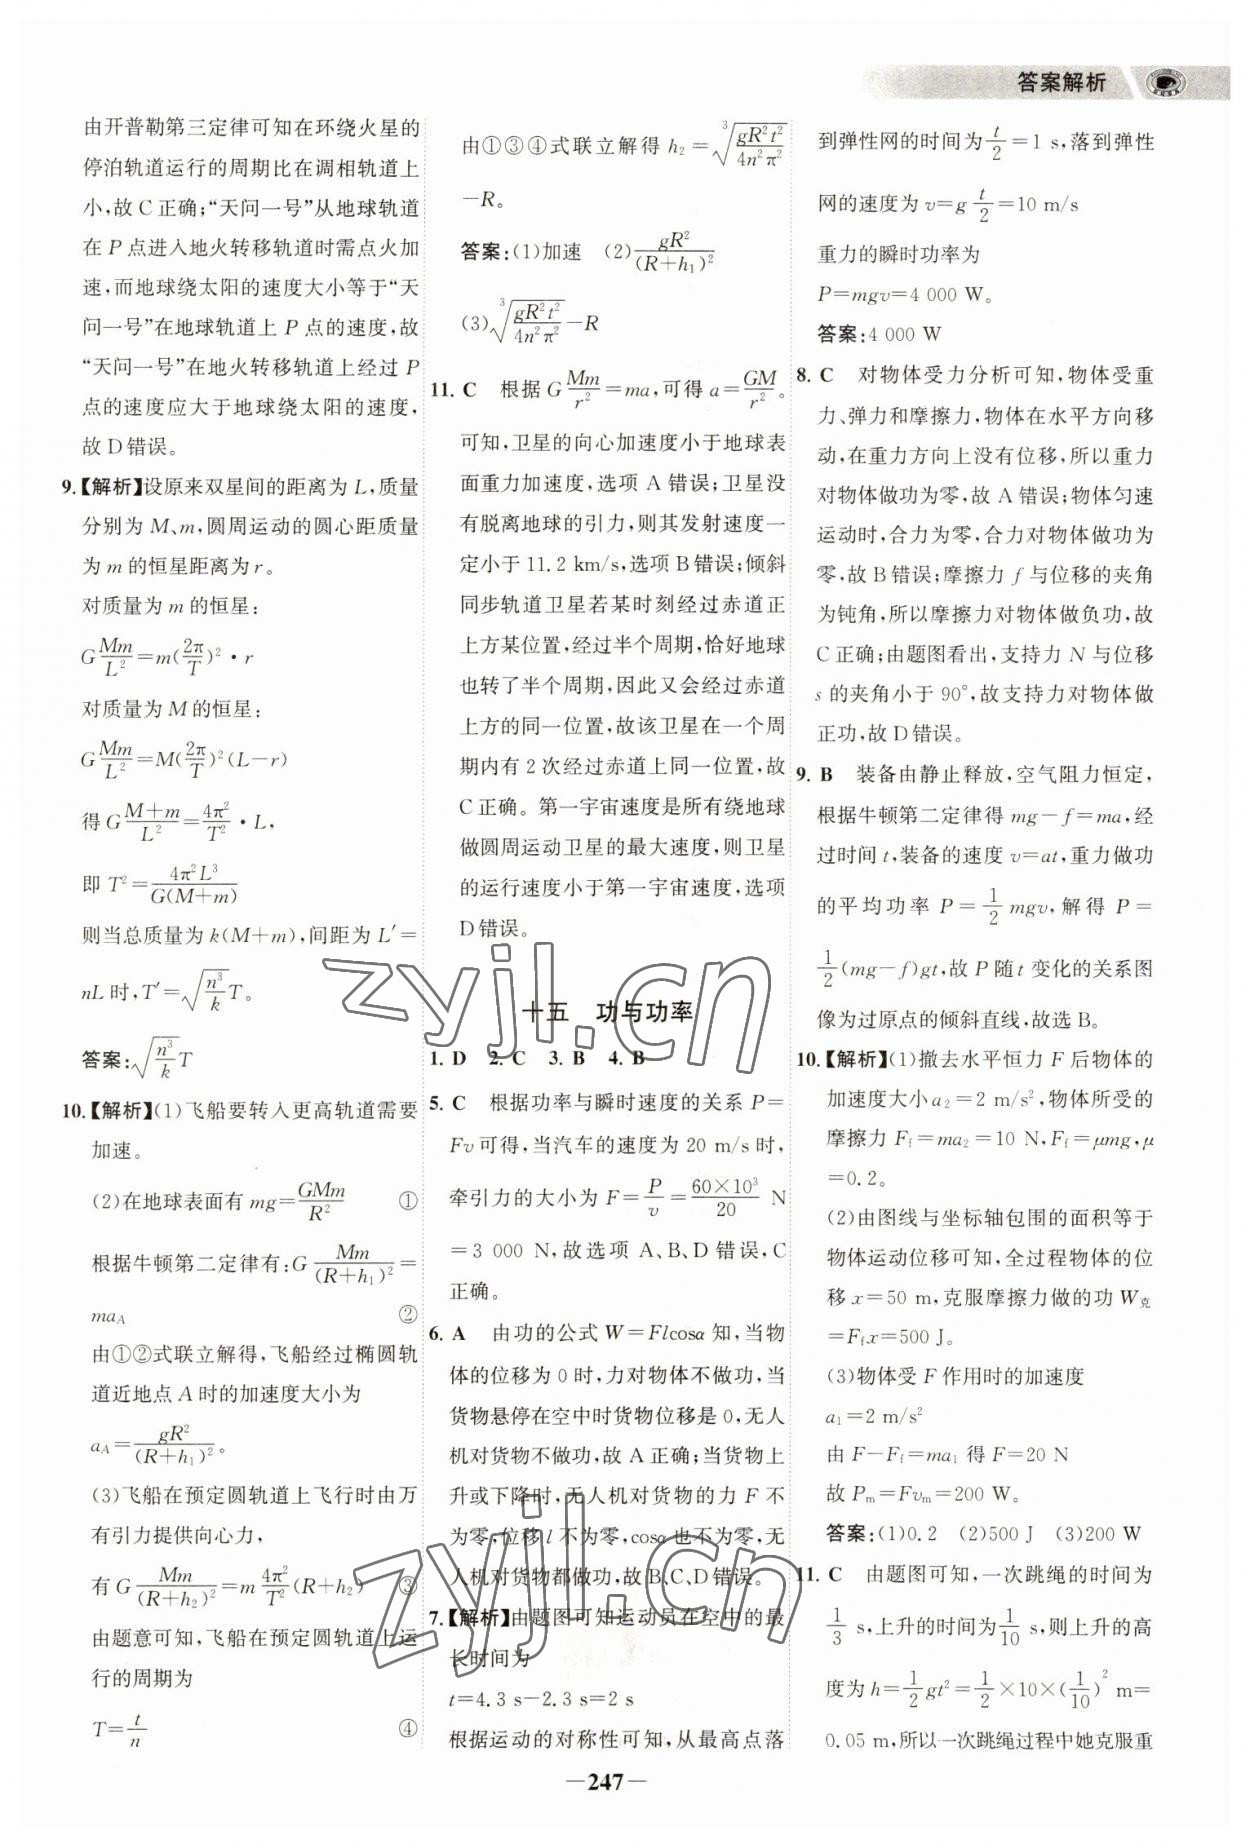 答案解析
由开普勒第三定律可知在环绕火星的
停泊轨道运行的周期比在调相轨道上
小,故 C 正确;“天问一号”从地球轨道
在 P 点进入地火转移轨道时需点火加
速,而地球绕太阳的速度大小等于“天
问一号”在地球轨道上 P 点的速度,故
“天问一号”在地火转移轨道上经过 P
点的速度应大于地球绕太阳的速度,
故 D 错误。
9.【解析】设原来双星间的距离为 L,质量
分别为 M、m,圆周运动的圆心距质量
为 m 的恒星距离为 r。
对质量为 m 的恒星:
G\frac{Mm}{L^2}=m(\frac{2π}{T})^2·r
对质量为 M 的恒星:
G\frac{Mm}{L^2}=M(\frac{2π}{T})^2(L-r)
得 G\frac{M+m}{L^2}=\frac{4π^2}{T^2}·L,
即 T^2=\frac{4π^2L^3}{G(M+m)}
则当总质量为 k(M+m),间距为 L′=
nL 时,T′=\sqrt{\frac{n^3}{k}}T。
答案:\sqrt{\frac{n^3}{k}}T
10.【解析】(1)飞船要转入更高轨道需要
加速。
(2)在地球表面有 mg=\frac{GMm}{R^2} ①
根据牛顿第二定律有:G\frac{Mm}{(R+h_1)^2}=
ma_A ②
由①②式联立解得,飞船经过椭圆轨
道近地点 A 时的加速度大小为
a_A=\frac{gR^2}{(R+h_1)^2}。
(3)飞船在预定圆轨道上飞行时由万
有引力提供向心力,
有 G\frac{Mm}{(R+h_2)^2}=m\frac{4π^2}{T^2}(R+h_2) ③
由题意可知,飞船在预定圆轨道上运
行的周期为
T=\frac{t}{n} ④
由①③④式联立解得 h_2=\sqrt[3]{\frac{gR^2t^2}{4n^2π^2}}
-R。
答案:(1)加速 (2)\frac{gR^2}{(R+h_1)^2}
(3)\sqrt[3]{\frac{gR^2t^2}{4n^2π^2}}-R
11. C 根据 G\frac{Mm}{r^2}=ma,可得 a=\frac{GM}{r^2}。
可知,卫星的向心加速度小于地球表
面重力加速度,选项 A 错误;卫星没
有脱离地球的引力,则其发射速度一
定小于 11.2 km/s,选项 B 错误;倾斜
同步轨道卫星若某时刻经过赤道正
上方某位置,经过半个周期,恰好地球
也转了半个周期,因此又会经过赤道
上方的同一位置,故该卫星在一个周
期内有 2 次经过赤道上同一位置,故
C 正确。第一宇宙速度是所有绕地球
做圆周运动卫星的最大速度,则卫星
的运行速度小于第一宇宙速度,选项
D 错误。
十五 功与功率
1. D 2. C 3. B 4. B
5. C 根据功率与瞬时速度的关系 P=
Fv 可得,当汽车的速度为 20 m/s 时,
牵引力的大小为 F=\frac{P}{v}=\frac{60×10^3}{20} N
=3 000 N,故选项 A、B、D 错误,C
正确。
6. A 由功的公式 W=Flcosα 知,当物
体的位移为 0 时,力对物体不做功,当
货物悬停在空中时货物位移是 0,无人
机对货物不做功,故 A 正确;当货物上
升或下降时,无人机对货物的力 F 不
为零,位移 l 不为零,cosα 也不为零,无
人机对货物都做功,故 B、C、D 错误。
7.【解析】由题图可知运动员在空中的最
长时间为
t=4.3 s-2.3 s=2 s
根据运动的对称性可知,从最高点落
到弹性网的时间为\frac{t}{2}=1 s,落到弹性
网的速度为 v=g\frac{t}{2}=10 m/s
重力的瞬时功率为
P=mgv=4 000 W。
答案:4 000 W
8. C 对物体受力分析可知,物体受重
力、弹力和摩擦力,物体在水平方向移
动,在重力方向上没有位移,所以重力
对物体做功为零,故 A 错误;物体匀速
运动时,合力为零,合力对物体做功为
零,故 B 错误;摩擦力 f 与位移的夹角
为钝角,所以摩擦力对物体做负功,故
C 正确;由题图看出,支持力 N 与位移
s 的夹角小于 90°,故支持力对物体做
正功,故 D 错误。
9. B 装备由静止释放,空气阻力恒定,
根据牛顿第二定律得 mg-f=ma,经
过时间 t,装备的速度 v=at,重力做功
的平均功率 P=\frac{1}{2}mgv,解得 P=
\frac{1}{2}(mg-f)gt,故 P 随 t 变化的关系图
像为过原点的倾斜直线,故选 B。
10.【解析】(1)撤去水平恒力 F 后物体的
加速度大小 a_2=2 m/s^2,物体所受的
摩擦力 F_f=ma_2=10 N,F_f=μmg,μ
=0.2。
(2)由图线与坐标轴包围的面积等于
物体运动位移可知,全过程物体的位
移 x=50 m,克服摩擦力做的功 W_克
=F_f x=500 J。
(3)物体受 F 作用时的加速度
a_1=2 m/s^2
由 F-F_f=ma_1 得 F=20 N
故 P_m=Fv_m=200 W。
答案:(1)0.2 (2)500 J (3)200 W
11. C 由题图可知,一次跳绳的时间为
\frac{1}{3} s,上升的时间为\frac{1}{10} s,则上升的高
度为 h=\frac{1}{2}gt^2=\frac{1}{2}×10×(\frac{1}{10})^2 m=
0.05 m,所以一次跳绳过程中她克服重
zyjl.cn
zyjl.cn
—247—